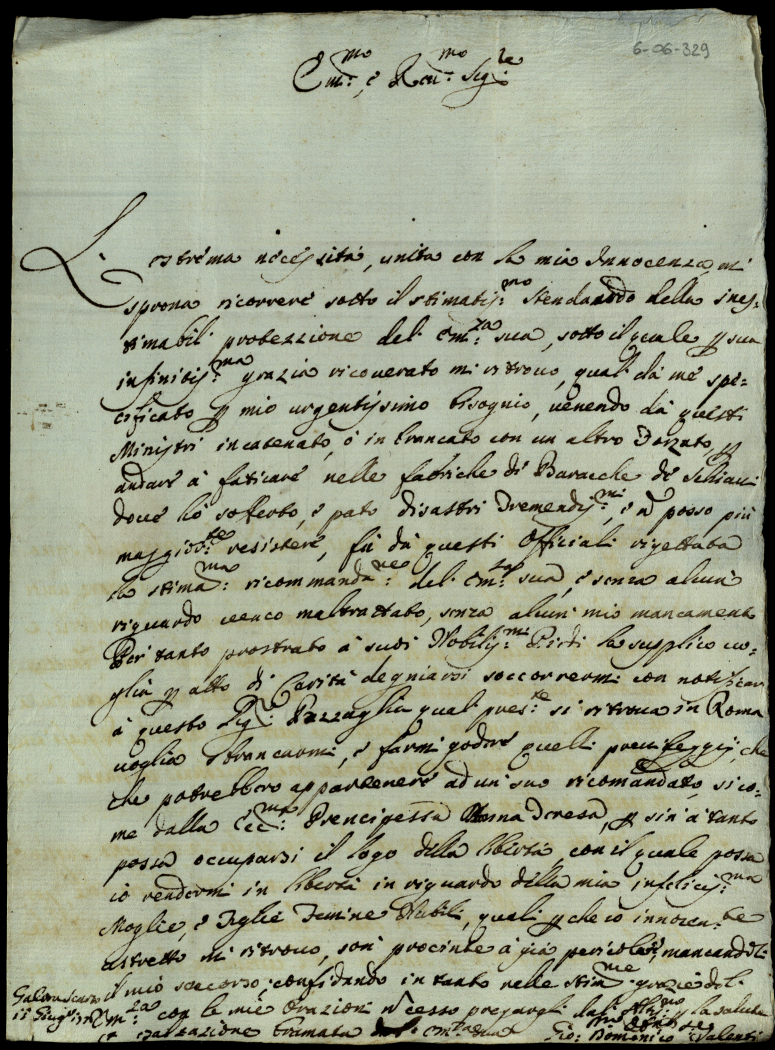 6-06-329
Em.mo, e Rev.mo Sig.re
L'estrema necessità, unita con la mia Innocenza, mi
sprona ricorrere sotto il stimatis.mo stendardo della ines-
timabil protezzione del Em.za sua, sotto il quale p sua
infinitis.ma grazia ricoverato mi ritrovo, qual dà me spe-
cificato p mio urgentissimo bisognio, venendo dà questi
Ministri incatenato, ò in brancato con un altro Forzato, p
andare à faticare nelle fabriche di Baracche de Schiavi
dove hò sofferto, e pato disastri Tremendis.mi, e ñ posso più
maggior.te resistere, fù dà questi Officiali rigettata
la stima.ma ricommanda.ne del Em.za sua, e senza alcun
riguardo vengo maltrattato, senza alcun mio mancamento
Per tanto prostrato à suoi Nobilis.mi Piedi la supplico vo-
glia p atto di Carità degniarsi soccorrermi con notificar
à questo Sig.re Pazzaglia qual pres.te si ritrova in Roma
voglia sbrancarmi, e farmi godere quelli previleggij, che
che potrebbero appartenere ad un suo ricomandato, sico-
me dalla Ecc.ma Prencipessa Anna Teresa, p sin à tanto
possa occuparsi il logo della libertà, con il quale possa
io rendermi in libertà in riguardo della mia infelicis.ma
Moglie, e Figlie Femine Nubili, quali p che io innocen.te
astretto mi ritrovo, son procinte à già pericolar, mancandoli
il mio soccorso; confidando in tanto nelle stim.me grazie del
Em.za con le mie Orazioni ñ cesso pregargli dal Altis.mo p la salute
e esaltazione bramata del Em.za sua
Gio: Domenico Valenti